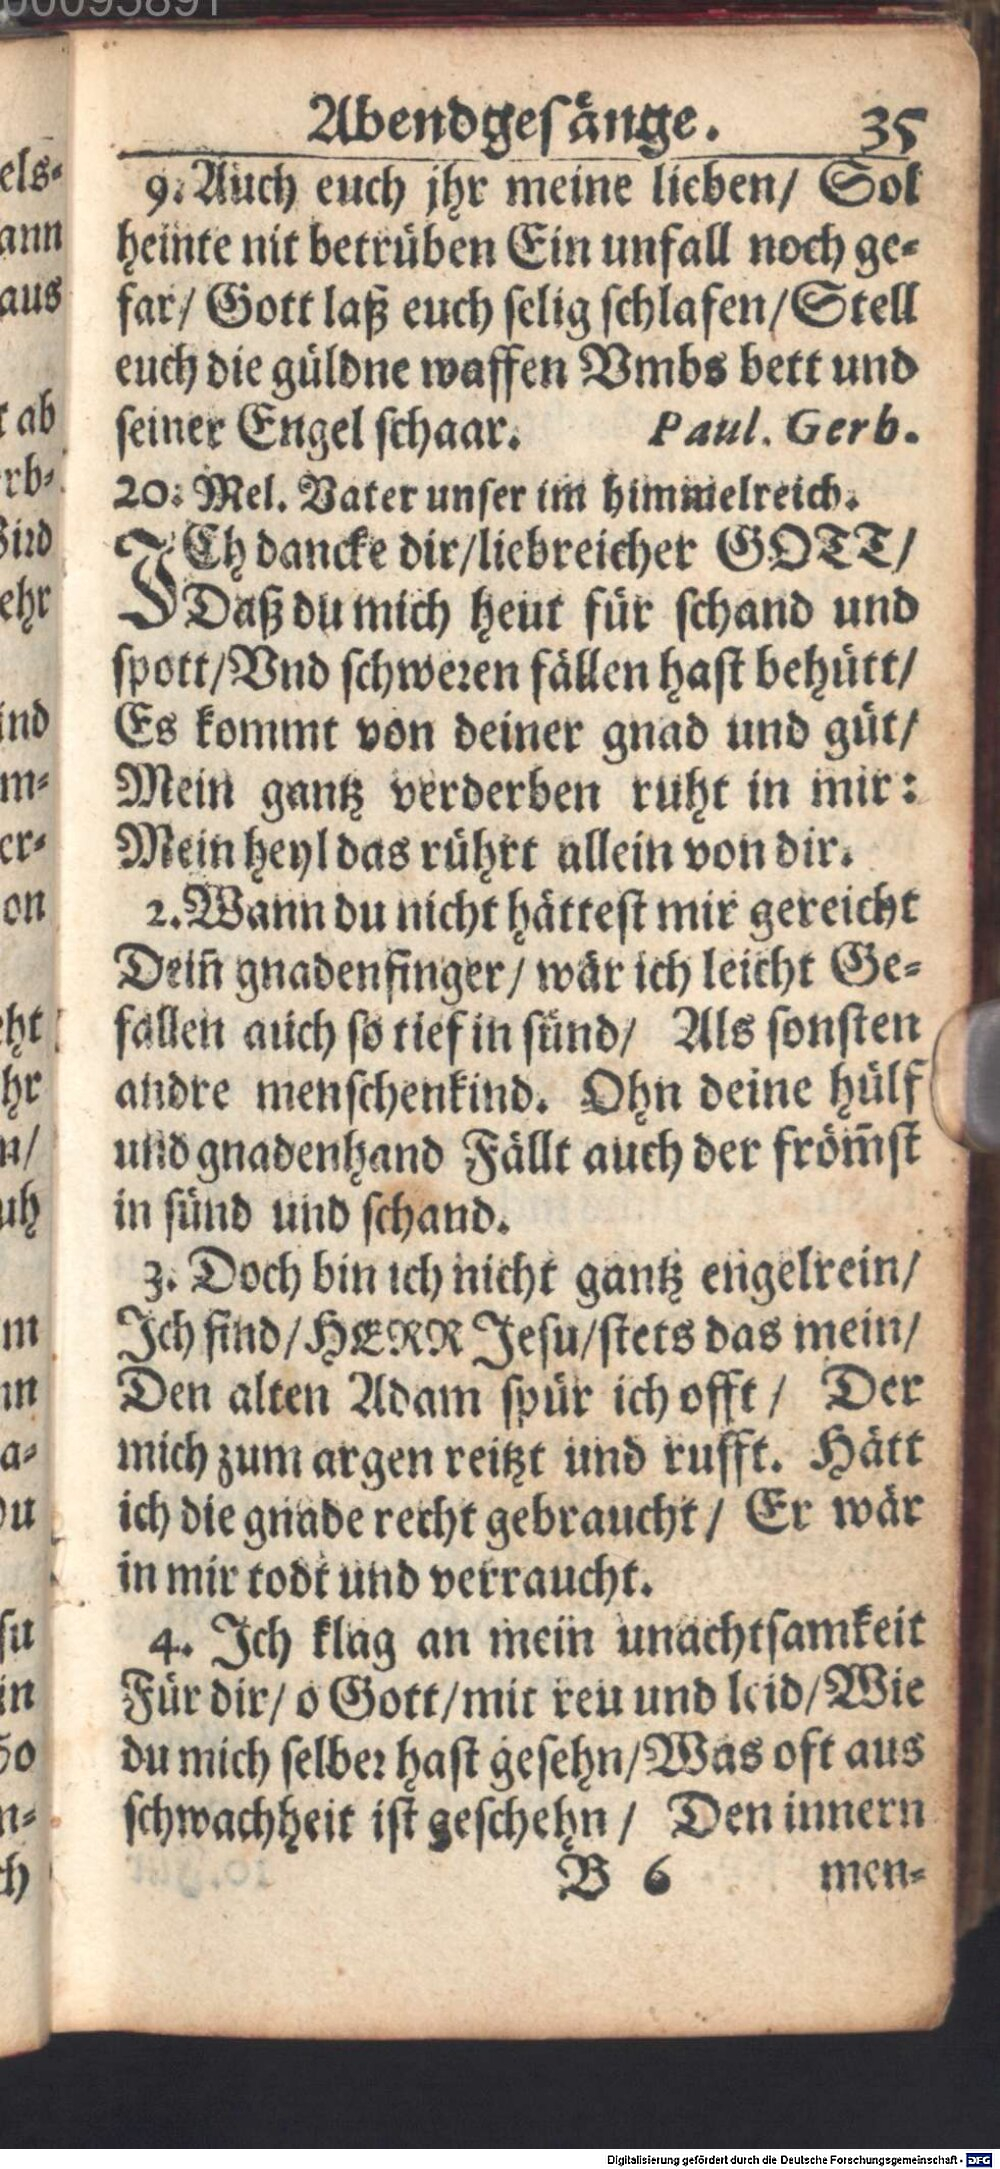 00095891
Abendgesänge. 35
9. Auch euch jhr meine lieben/ Sol
heinte nit betrüben Ein unfall noch ge-
far/ Gott laß euch selig schlafen/ Stell
euch die güldne waffen Vmbs bett und
seiner Engel schaar. Paul. Gerb.
20. Mel. Vater unser im himmelreich.
ICh dancke dir/ liebreicher GOTT/
Daß du mich heut für schand und
spott/ Vnd schweren fällen hast behütt/
Es kommt von deiner gnad und güt/
Mein gantz verderben ruht in mir:
Mein heyl das rührt allein von dir.
2. Wann du nicht hättest mir gereicht
Dein̄ gnadenfinger/ wär ich leicht Ge-
fallen auch so tief in sünd/ Als sonsten
andre menschenkind. Ohn deine hülf
und gnadenhand Fällt auch der from̄st
in sünd und schand.
3. Doch bin ich nicht gantz engelrein/
Ich find/ HERR Jesu/ stets das mein/
Den alten Adam spür ich offt/ Der
mich zum argen reitzt und rufft. Hätt
ich die gnade recht gebraucht/ Er wär
in mir todt und verraucht.
4. Ich klag an mein unachtsamkeit
Für dir/ o Gott/ mit reu und leid/ Wie
du mich selber hast gesehn/ Was oft aus
schwachheit ist geschehn/ Den innern
B 6 men-
Digitalisierung gefördert durch die Deutsche Forschungsgemeinschaft - DFG